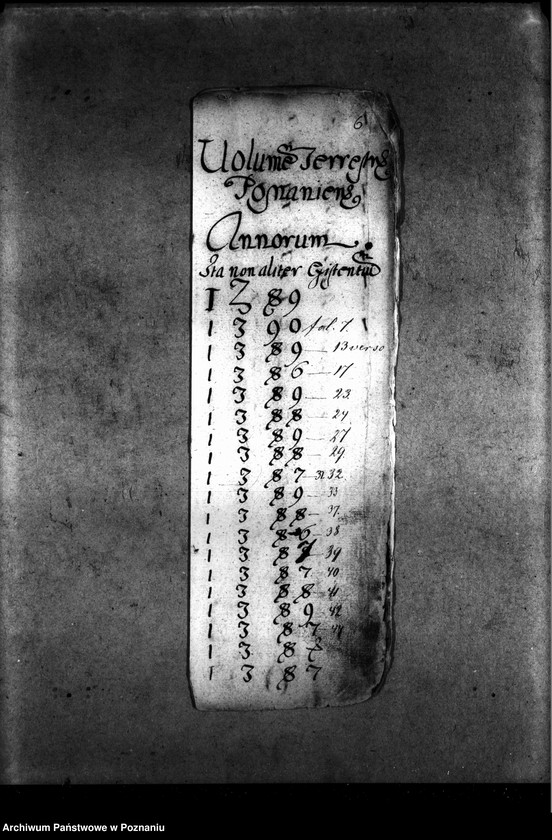 6
Volumen Terrestre
Posnaniense
Annorum
Ita non aliter Existentium
1 3 89
1 3 90 fol. 7.
1 3 89 — 13 verso
1 3 86 — 17
1 3 89 — 23
1 3 88 — 24
1 3 89 — 27
1 3 88 — 29
1 3 87 — 32
1 3 89 — 33
1 3 88 — 37
1 3 86 — 38
1 3 8 — 39
1 3 87 40
1 3 88 — 41
1 3 89 — 42
1 3 87 44
1 3 8
1 3 87
Archiwum Państwowe w Poznaniu